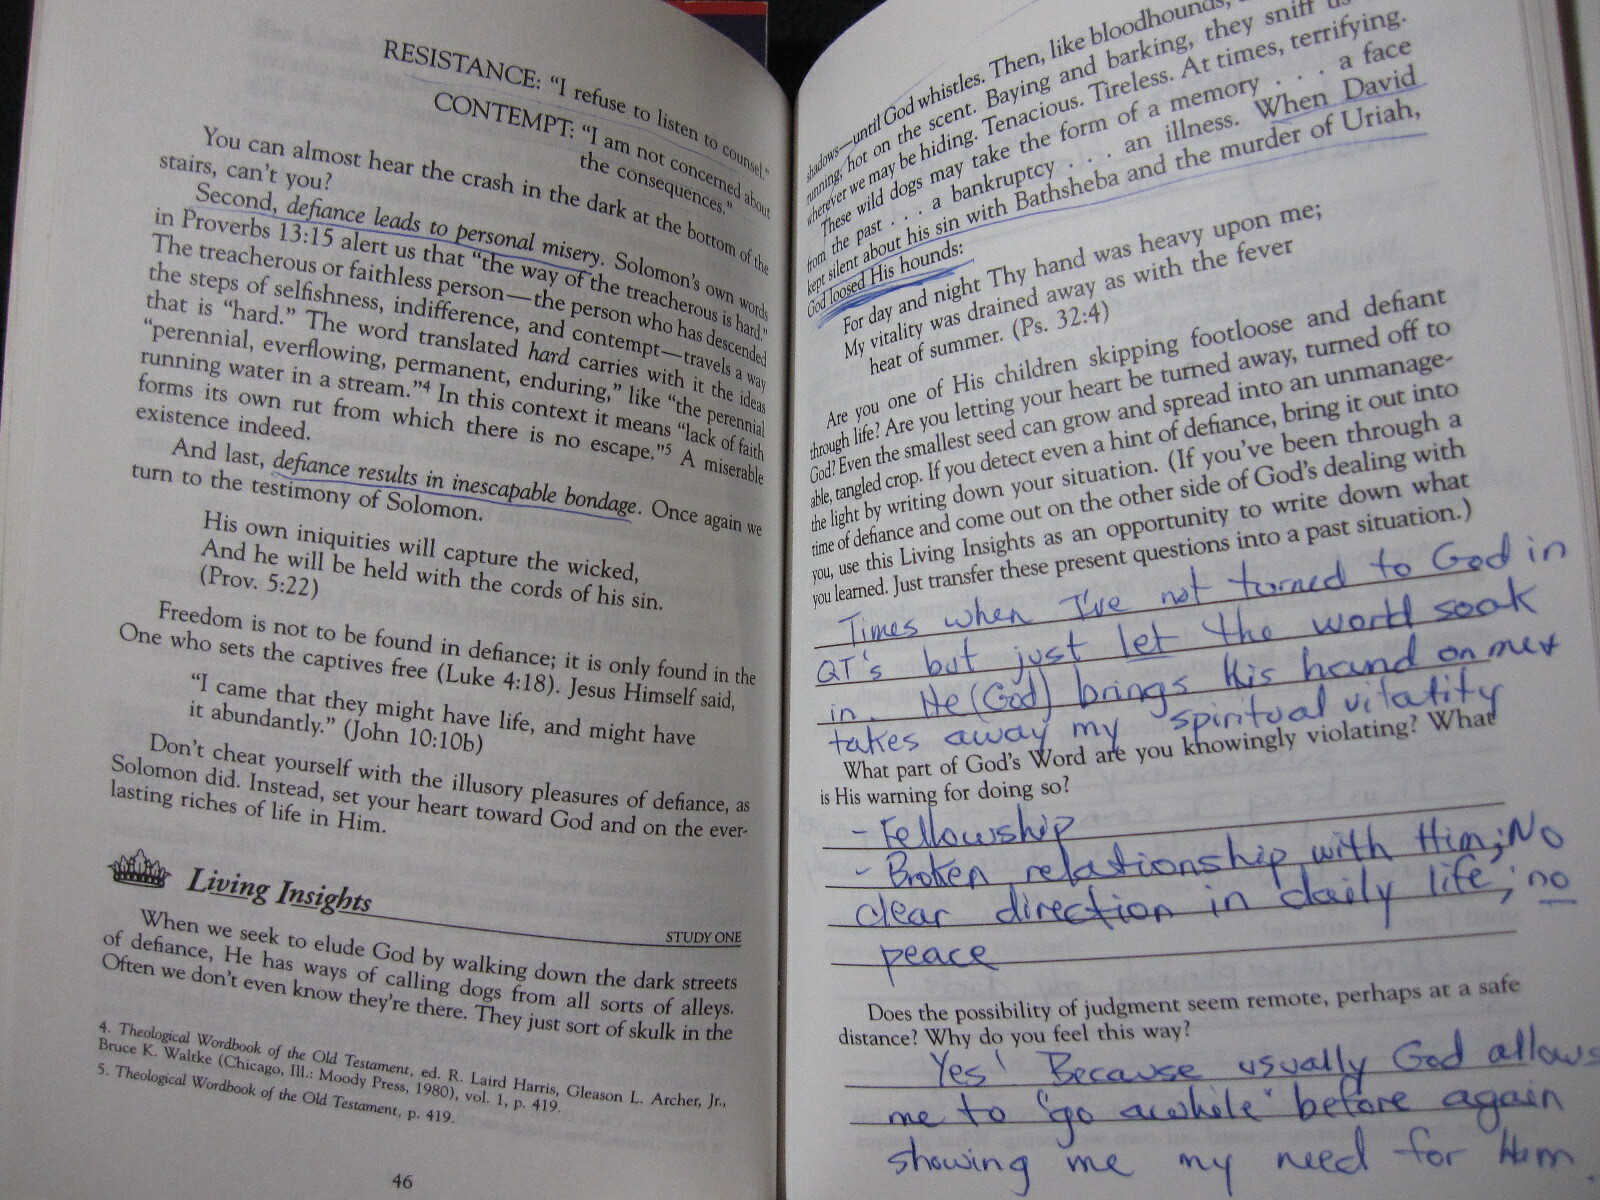 RESISTANCE: “I refuse to listen to counsel.”
CONTEMPT: “I am not concerned about
the consequences.”
You can almost hear the crash in the dark at the bottom of the
stairs, can’t you?
Second, defiance leads to personal misery. Solomon’s own words
in Proverbs 13:15 alert us that “the way of the treacherous is hard.”
The treacherous or faithless person—the person who has descended
the steps of selfishness, indifference, and contempt—travels a way
that is “hard.” The word translated hard carries with it the ideas
“perennial, everflowing, permanent, enduring,” like “the perennial
running water in a stream.”4 In this context it means “lack of faith
forms its own rut from which there is no escape.”5 A miserable
existence indeed.
And last, defiance results in inescapable bondage. Once again we
turn to the testimony of Solomon.
His own iniquities will capture the wicked,
And he will be held with the cords of his sin.
(Prov. 5:22)
Freedom is not to be found in defiance; it is only found in the
One who sets the captives free (Luke 4:18). Jesus Himself said,
“I came that they might have life, and might have
it abundantly.” (John 10:10b)
Don’t cheat yourself with the illusory pleasures of defiance, as
Solomon did. Instead, set your heart toward God and on the ever-
lasting riches of life in Him.
Living Insights
STUDY ONE
When we seek to elude God by walking down the dark streets
of defiance, He has ways of calling dogs from all sorts of alleys.
Often we don’t even know they’re there. They just sort of skulk in the
4. Theological Wordbook of the Old Testament, ed. R. Laird Harris, Gleason L. Archer, Jr.,
Bruce K. Waltke (Chicago, Ill.: Moody Press, 1980), vol. 1, p. 419.
5. Theological Wordbook of the Old Testament, p. 419.
46
shadows—until God whistles. Then, like bloodhounds,
running, hot on the scent. Baying and barking, they sniff us
wherever we may be hiding. Tenacious. Tireless. At times, terrifying.
These wild dogs may take the form of a memory . . . a face
from the past . . . a bankruptcy . . . an illness. When David
kept silent about his sin with Bathsheba and the murder of Uriah,
God loosed His hounds:
For day and night Thy hand was heavy upon me;
My vitality was drained away as with the fever
heat of summer. (Ps. 32:4)
Are you one of His children skipping footloose and defiant
through life? Are you letting your heart be turned away, turned off to
God? Even the smallest seed can grow and spread into an unmanage-
able, tangled crop. If you detect even a hint of defiance, bring it out into
the light by writing down your situation. (If you’ve been through a
time of defiance and come out on the other side of God’s dealing with
you, use this Living Insights as an opportunity to write down what
you learned. Just transfer these present questions into a past situation.)
Times when I've not turned to God in
QT's but just let the world soak
in. He (God) brings His hand on me +
takes away my spiritual vitatity
What part of God’s Word are you knowingly violating? What
is His warning for doing so?
- Fellowship
- Broken relationship with Him; No
clear direction in daily life; no
peace
Does the possibility of judgment seem remote, perhaps at a safe
distance? Why do you feel this way?
Yes! Because usually God allows
me to "go awhile" before again
showing me my need for Him.